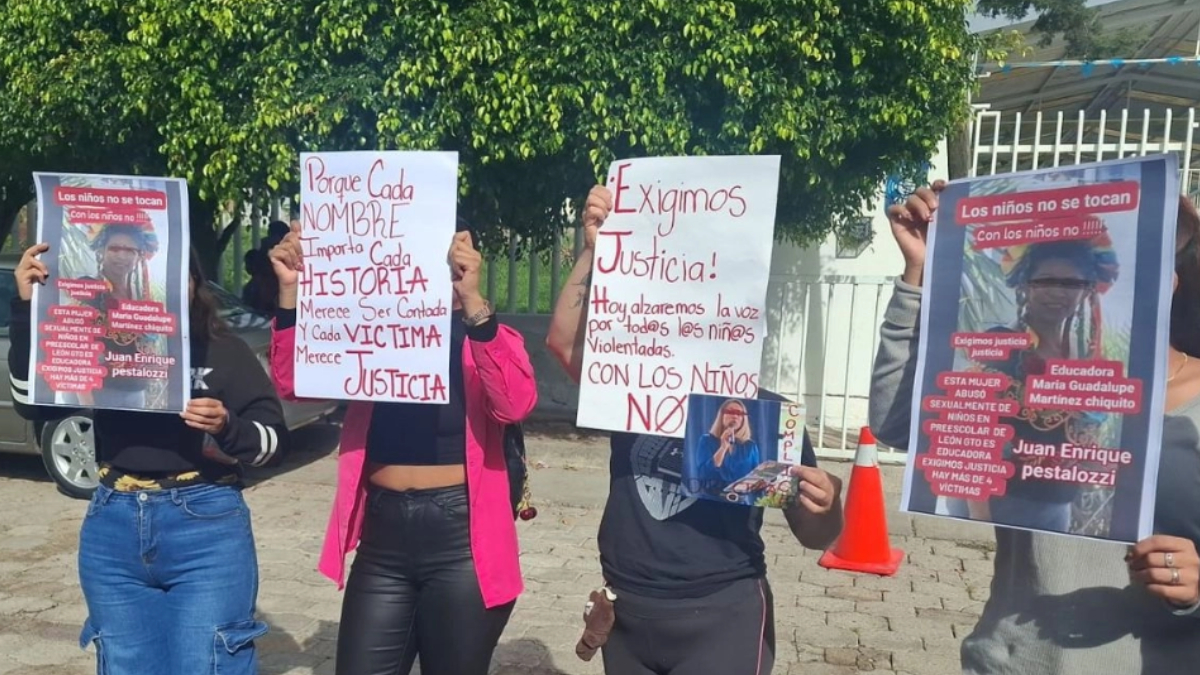 Los niños no se tocan
Con los niños no !!!!
Exigimos justicia
justicia
ESTA MUJER
ABUSO
SEXUALMENTE DE
NIÑOS EN
PREESCOLAR DE
LEÓN GTO ES
EDUCADORA
EXIGIMOS JUSTICIA
HAY MAS DE 4
VÍCTIMAS
Educadora
Maria Guadalupe
Martínez chiquito
Juan Enrique
pestalozzi
Porque Cada
NOMBRE
Importa Cada
HISTORIA
Merece Ser Contada
Y Cada VICTIMA
Merece JUSTICIA
¡Exigimos
Justicia!
Hoy alzaremos la voz
por tod@s l@s niñ@s
Violentadas.
CON LOS NIÑOS
NO
Los niños no se tocan
Con los niños no !!!!
Exigimos justicia
justicia
ESTA MUJER
ABUSO
SEXUALMENTE DE
NIÑOS EN
PREESCOLAR DE
LEÓN GTO ES
EDUCADORA
EXIGIMOS JUSTICIA
HAY MAS DE 4
VÍCTIMAS
Educadora
Maria Guadalupe
Martínez chiquito
Juan Enrique
pestalozzi